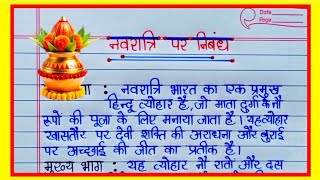 Date
Page
नवरात्रि पर निबंध
ा : नवरात्रि भारत का एक प्रमुख
हिन्दू त्योहार है, जो माता दुर्गा के नौ
रूपो की पूजा के लिए मनाया जाता है। यह त्योहार
खासतौर पर देवी शक्ति की अराधना और बुराई
पर अच्छाई की जीत का प्रतीक है।
मुख्य भाग : यह त्योहार नौ रातों और दस